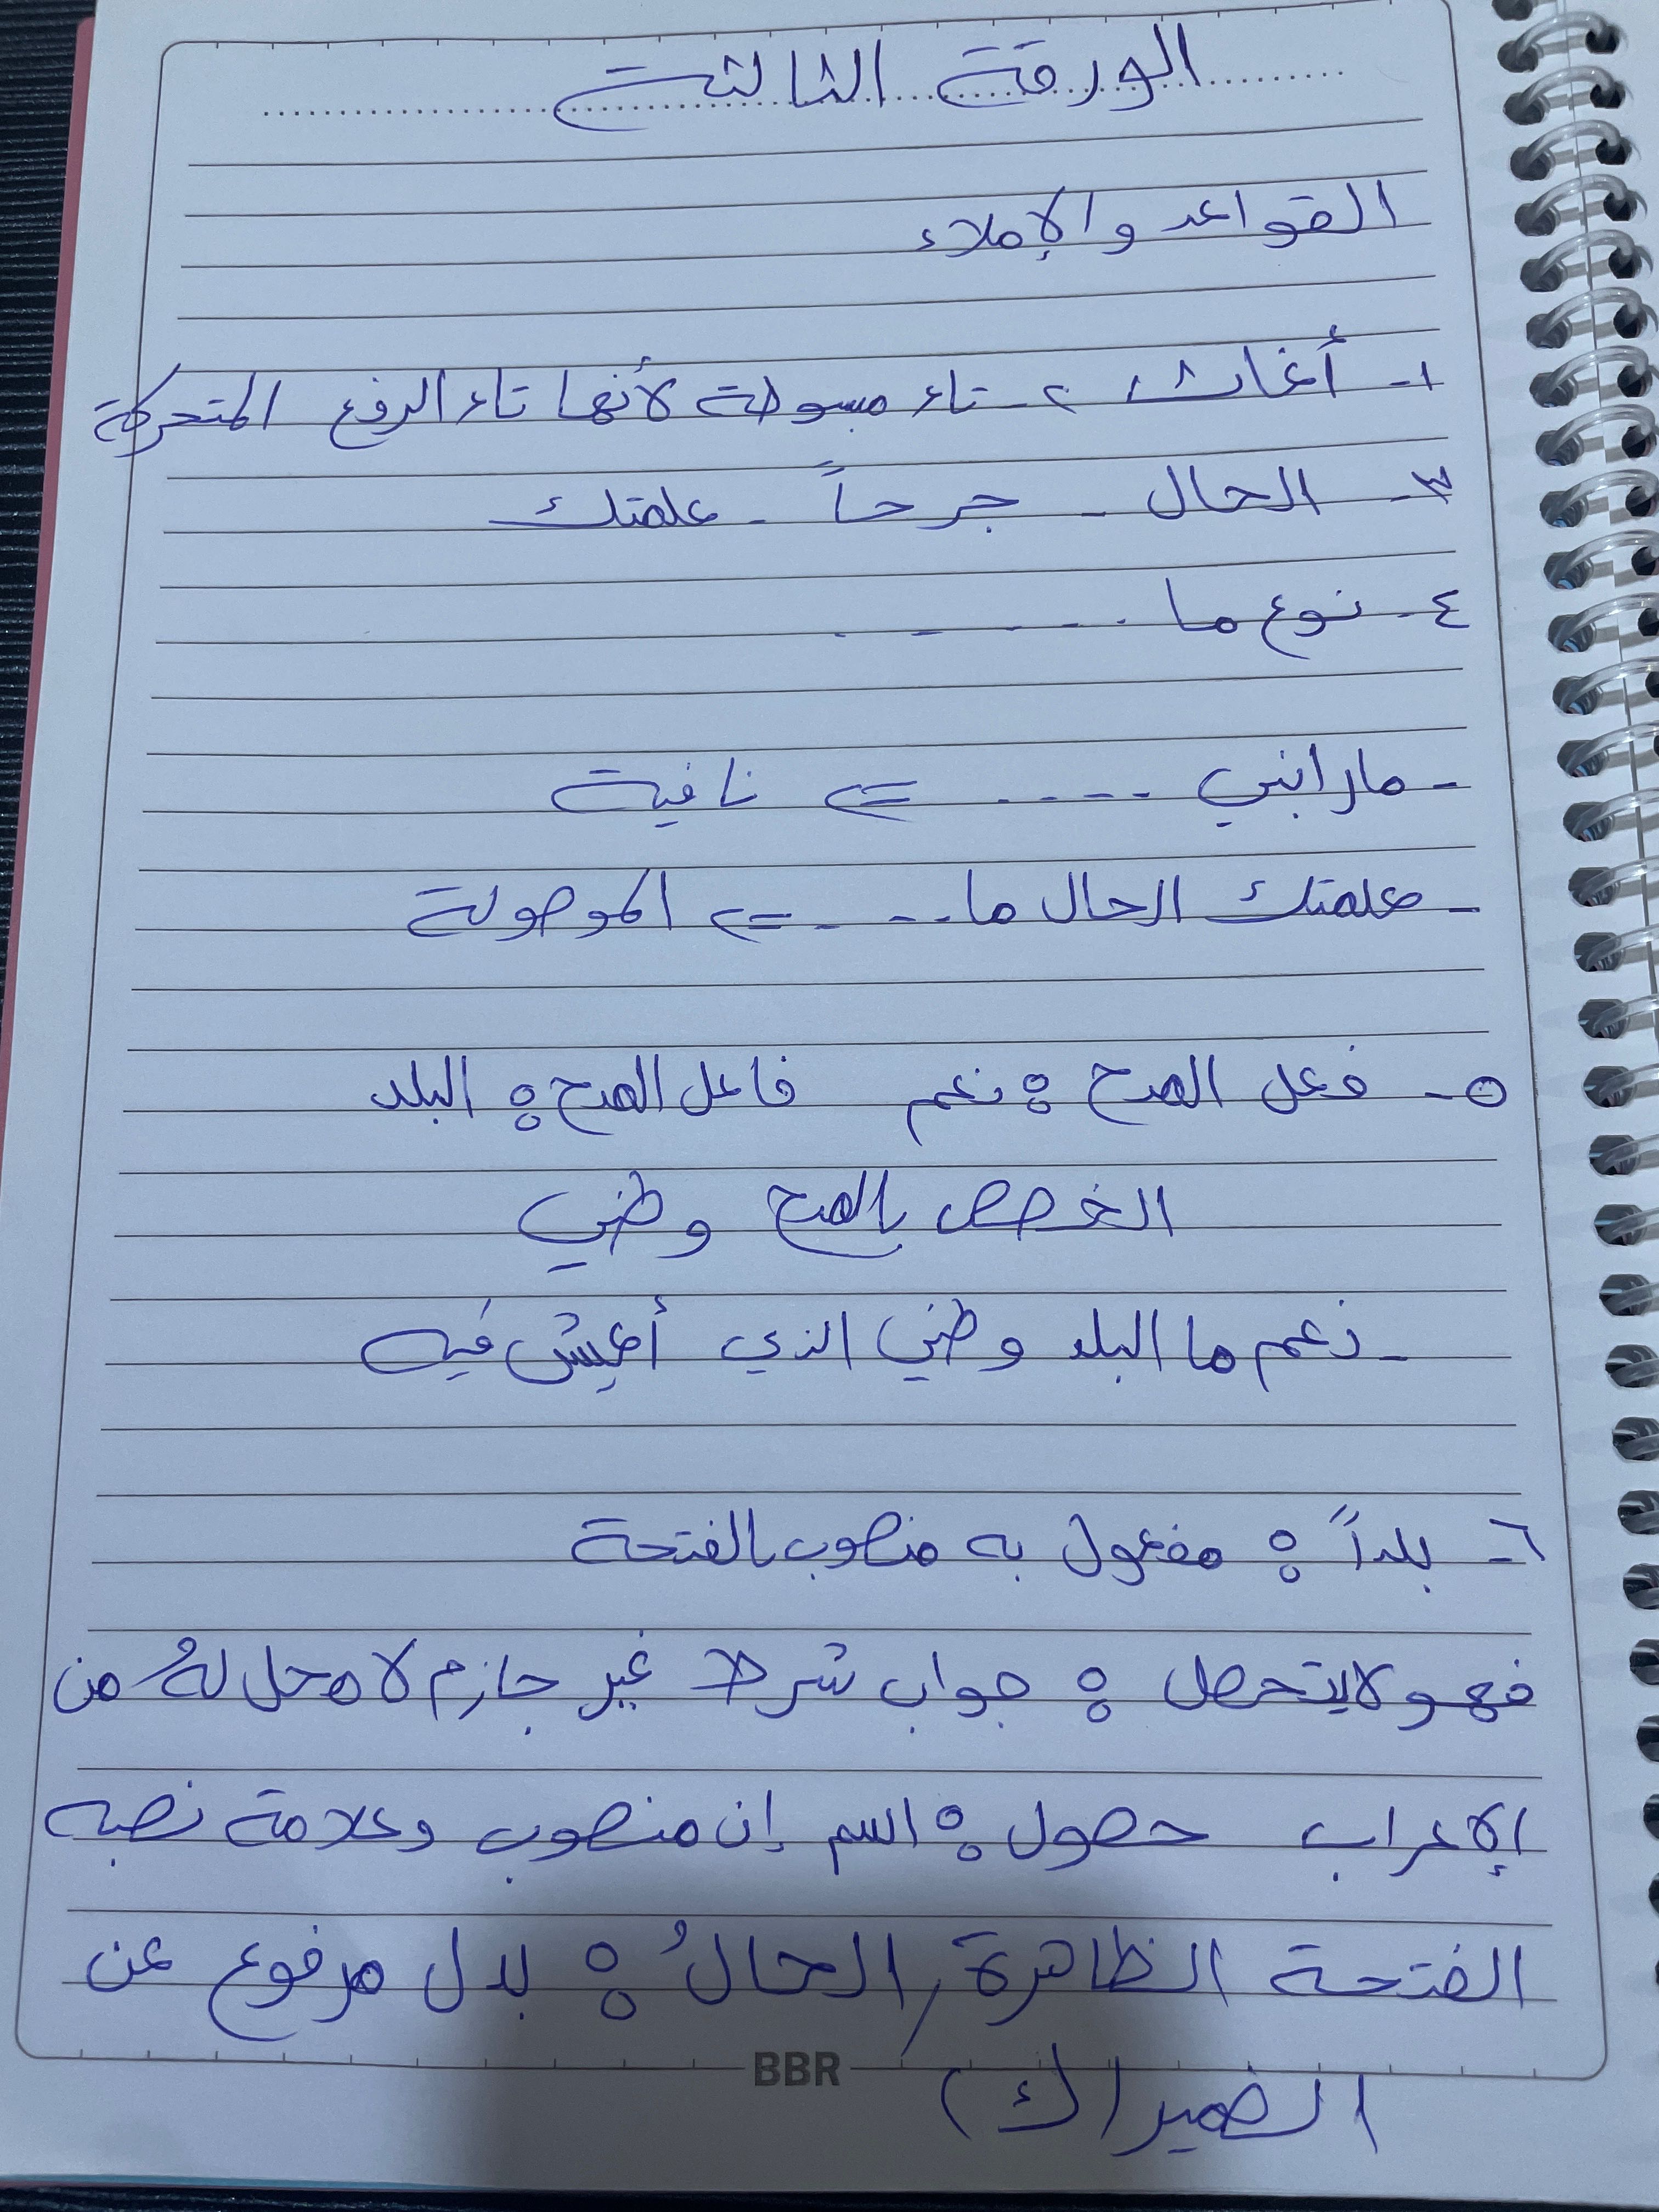 الورقة الثالثة
القواعد والإملاء
١- أغاث ٢- تاء مبسوطة لأنها تاء الرفع المتحركة
٣- الحال - جرحاً - علمتك
٤- نوع ما - - - - - -
- مارابني - - - - ⇐ نافية
- علمتك الحال ما - - - ⇐ الموصولة
٥- فعل المدح : نعم فاعل المدح : البلد
الخصص بالمدح وطني
- نعم ما البلد وطني الذي أعيش فيه
٦- بلداً : مفعول به منصوب بالفتحة
فهو لا يتحصل : جواب شرط غير جازم لا محل لهُ من
الإعراب حصول : اسم إن منصوب وعلامة نصبه
الفتحة الظاهرة , الحالُ : بدل مرفوع عن
BBR
الضمير (ك)